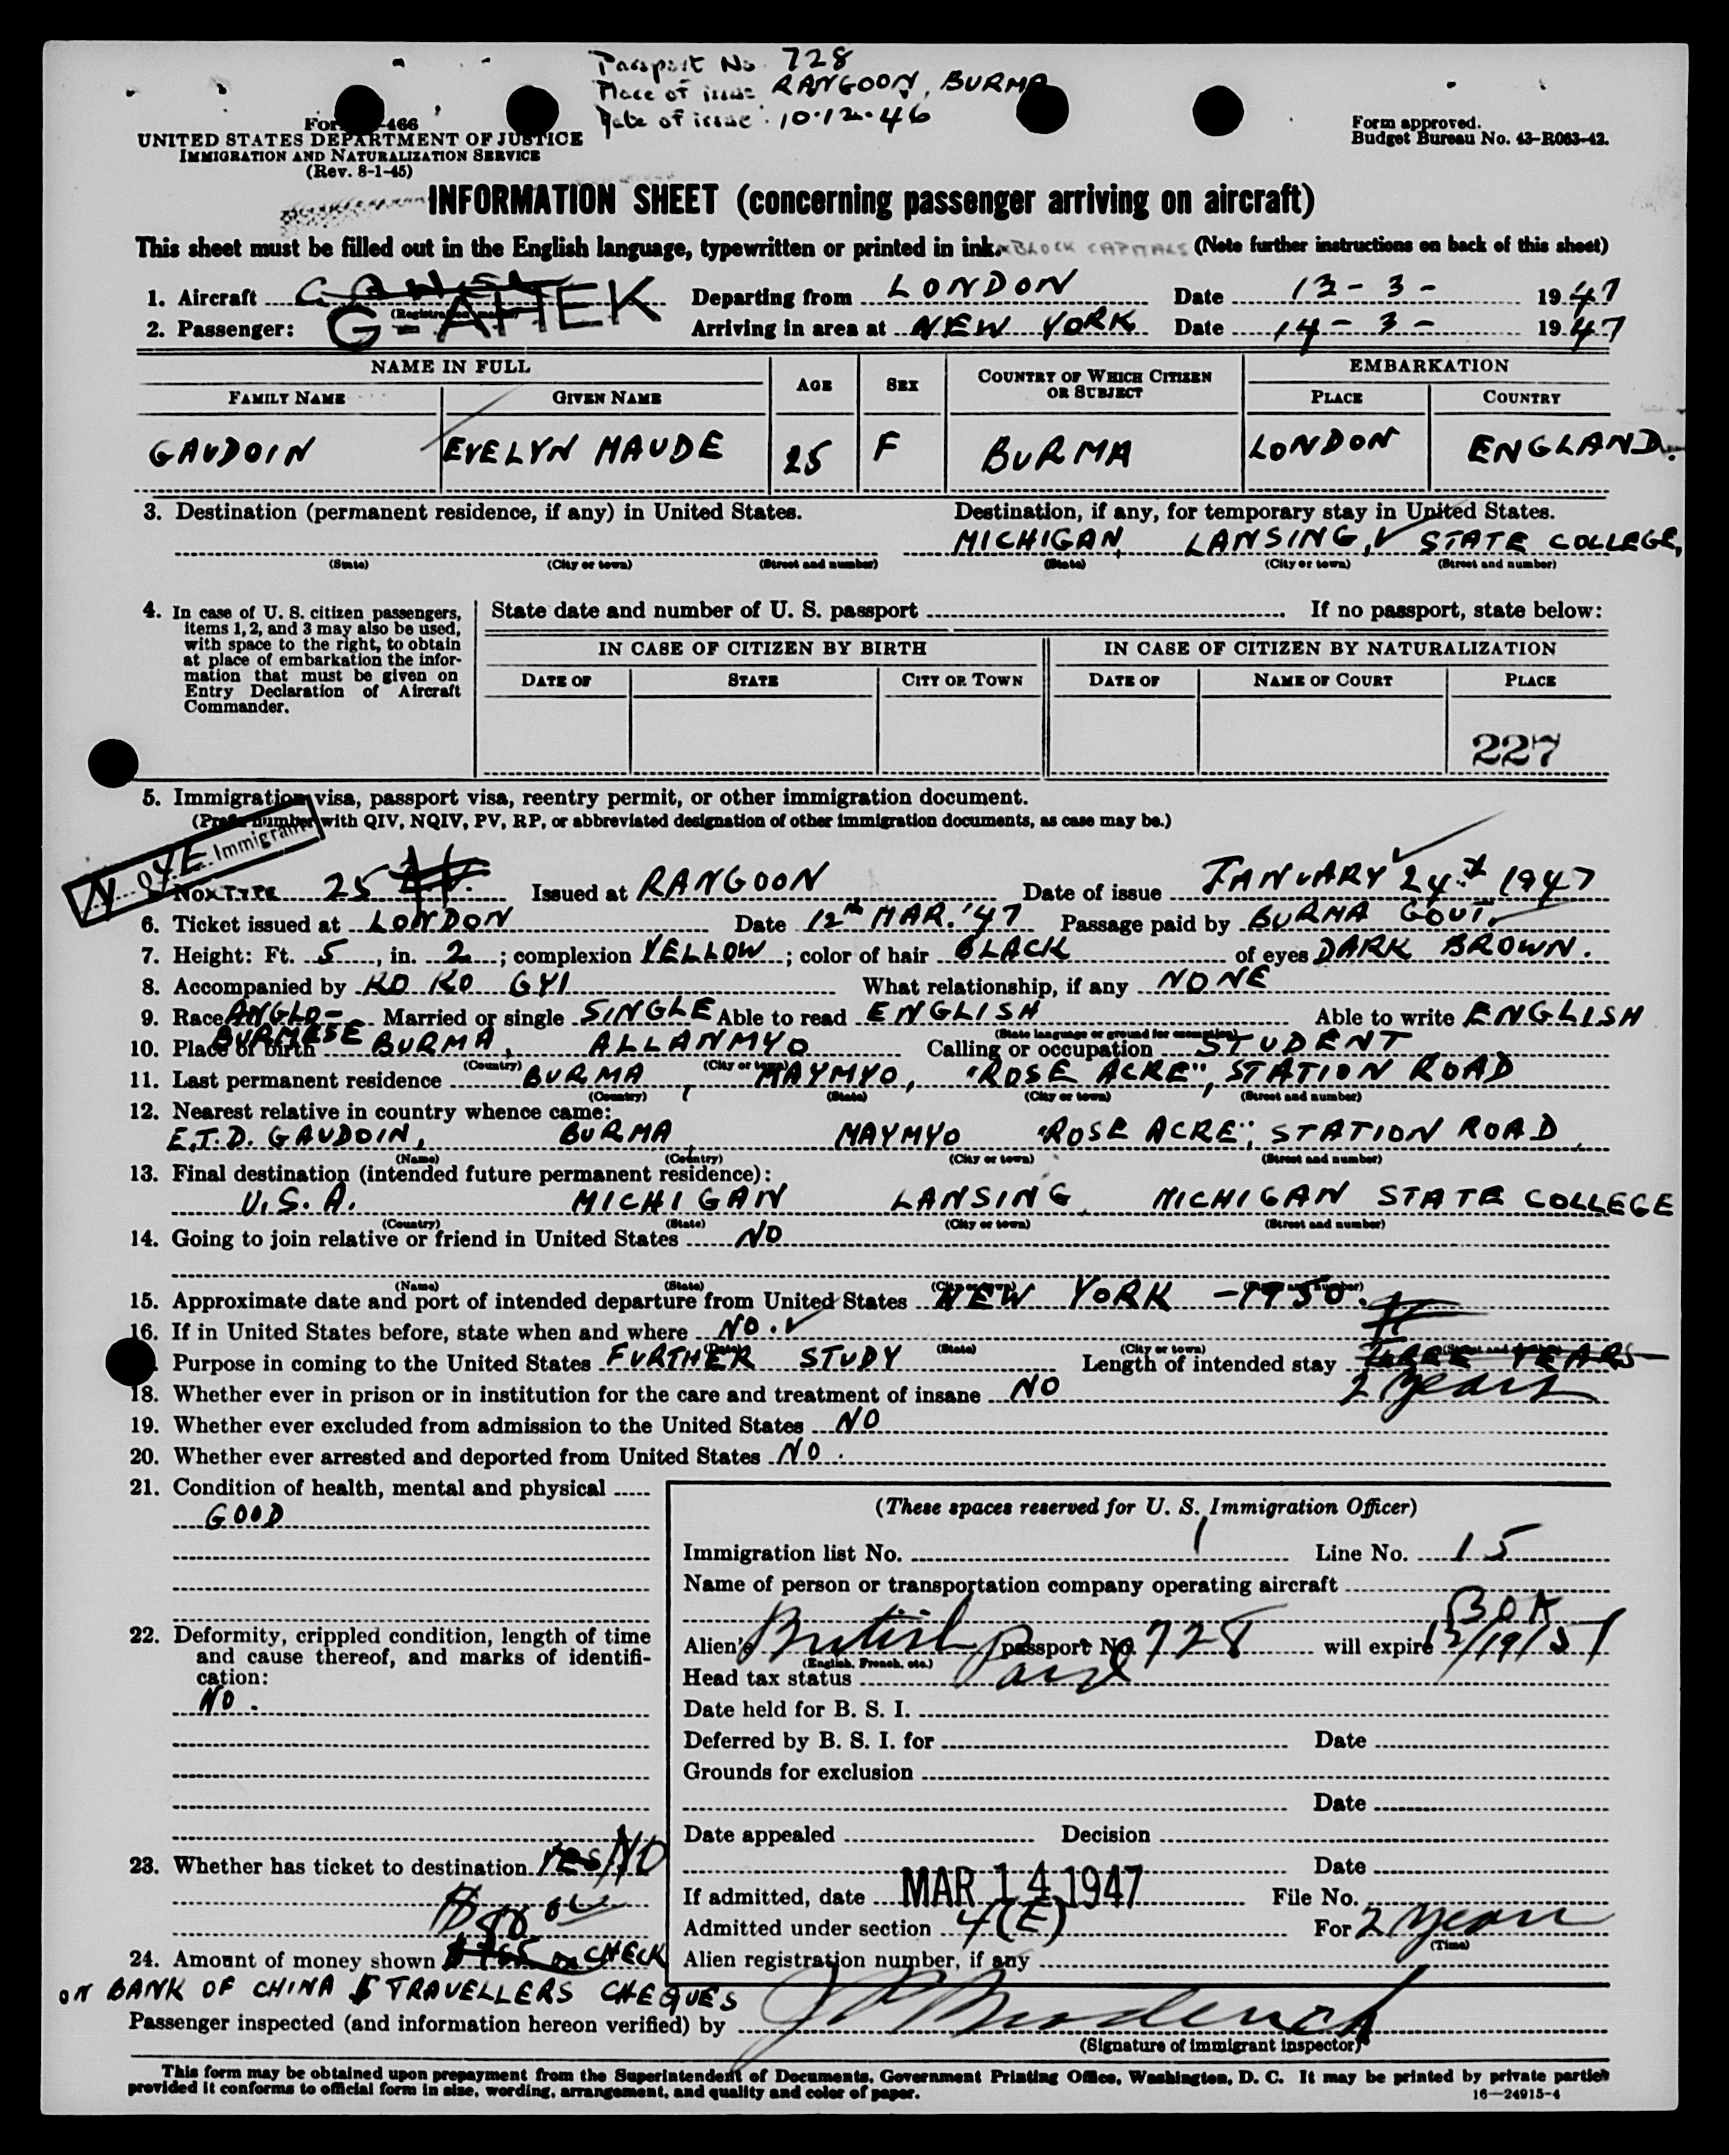 Passport No. 728
Place of issue RANGOON, BURMA
Date of issue: 10.12.46
Form -466
UNITED STATES DEPARTMENT OF JUSTICE
IMMIGRATION AND NATURALIZATION SERVICE
(Rev. 8-1-45)
Form approved.
Budget Bureau No. 43-R063-42.
INFORMATION SHEET (concerning passenger arriving on aircraft)
This sheet must be filled out in the English language, typewritten or printed in ink. BLOCK CAPITALS (Note further instructions on back of this sheet)
1. Aircraft G-AHEK Departing from LONDON Date 12-3- 1947
2. Passenger: Arriving in area at NEW YORK Date 14-3- 1947
NAME IN FULL AGE SEX COUNTRY OF WHICH CITIZEN OR SUBJECT EMBARKATION
FAMILY NAME GIVEN NAME PLACE COUNTRY
GAUDOIN EVELYN MAUDE 25 F BURMA LONDON ENGLAND.
3. Destination (permanent residence, if any) in United States. Destination, if any, for temporary stay in United States.
MICHIGAN, LANSING, STATE COLLEGE,
(State) (City or town) (Street and number) (State) (City or town) (Street and number)
4. In case of U. S. citizen passengers, items 1, 2, and 3 may also be used, with space to the right, to obtain at place of embarkation the information that must be given on Entry Declaration of Aircraft Commander.
State date and number of U. S. passport If no passport, state below:
IN CASE OF CITIZEN BY BIRTH IN CASE OF CITIZEN BY NATURALIZATION
DATE OF STATE CITY OR TOWN DATE OF NAME OF COURT PLACE
227
5. Immigration visa, passport visa, reentry permit, or other immigration document.
(Prefix number with QIV, NQIV, PV, RP, or abbreviated designation of other immigration documents, as case may be.)
Immigrant
No. 25 Issued at RANGOON Date of issue JANUARY 24th 1947
6. Ticket issued at LONDON Date 12th MAR. '47 Passage paid by BURMA GOVT.
7. Height: Ft. 5, in. 2; complexion YELLOW; color of hair BLACK of eyes DARK BROWN.
8. Accompanied by KO KO GYI What relationship, if any NONE
9. Race ANGLO-BURMESE Married or single SINGLE Able to read ENGLISH Able to write ENGLISH
(State language or ground for exemption)
10. Place of birth BURMA, ALLANMYO Calling or occupation STUDENT
(Country) (City or town)
11. Last permanent residence BURMA, MAYMYO, "ROSE ACRE", STATION ROAD
(Country) (State) (City or town) (Street and number)
12. Nearest relative in country whence came:
E.T.D. GAUDOIN, BURMA, MAYMYO "ROSE ACRE", STATION ROAD,
(Name) (Country) (City or town) (Street and number)
13. Final destination (intended future permanent residence):
U.S.A. MICHIGAN LANSING, MICHIGAN STATE COLLEGE
(Country) (State) (City or town) (Street and number)
14. Going to join relative or friend in United States NO
(Name) (State) (City or town) (Street and number)
15. Approximate date and port of intended departure from United States NEW YORK - 1950.
16. If in United States before, state when and where NO.
(Date) (State) (City or town) (Street and number)
Purpose in coming to the United States FURTHER STUDY Length of intended stay THREE YEARS
2 years
18. Whether ever in prison or in institution for the care and treatment of insane NO
19. Whether ever excluded from admission to the United States NO
20. Whether ever arrested and deported from United States NO.
21. Condition of health, mental and physical
GOOD
22. Deformity, crippled condition, length of time and cause thereof, and marks of identification:
NO.
23. Whether has ticket to destination YES/NO
24. Amount of money shown CHECK
ON BANK OF CHINA TRAVELLERS CHEQUES
(These spaces reserved for U. S. Immigration Officer)
Immigration list No. 1 Line No. 15
Name of person or transportation company operating aircraft
Alien's British passport No. 728 will expire
(English, French, etc.)
Head tax status Paid
Date held for B. S. I.
Deferred by B. S. I. for Date
Grounds for exclusion
Date
Date appealed Decision
Date
If admitted, date MAR 14 1947 File No.
Admitted under section 4(E) For 2 years
(Time)
Alien registration number, if any
Passenger inspected (and information hereon verified) by
(Signature of immigrant inspector)
This form may be obtained upon prepayment from the Superintendent of Documents, Government Printing Office, Washington, D. C. It may be printed by private parties
provided it conforms to official form in size, wording, arrangement, and quality and color of paper.
16—24915-4